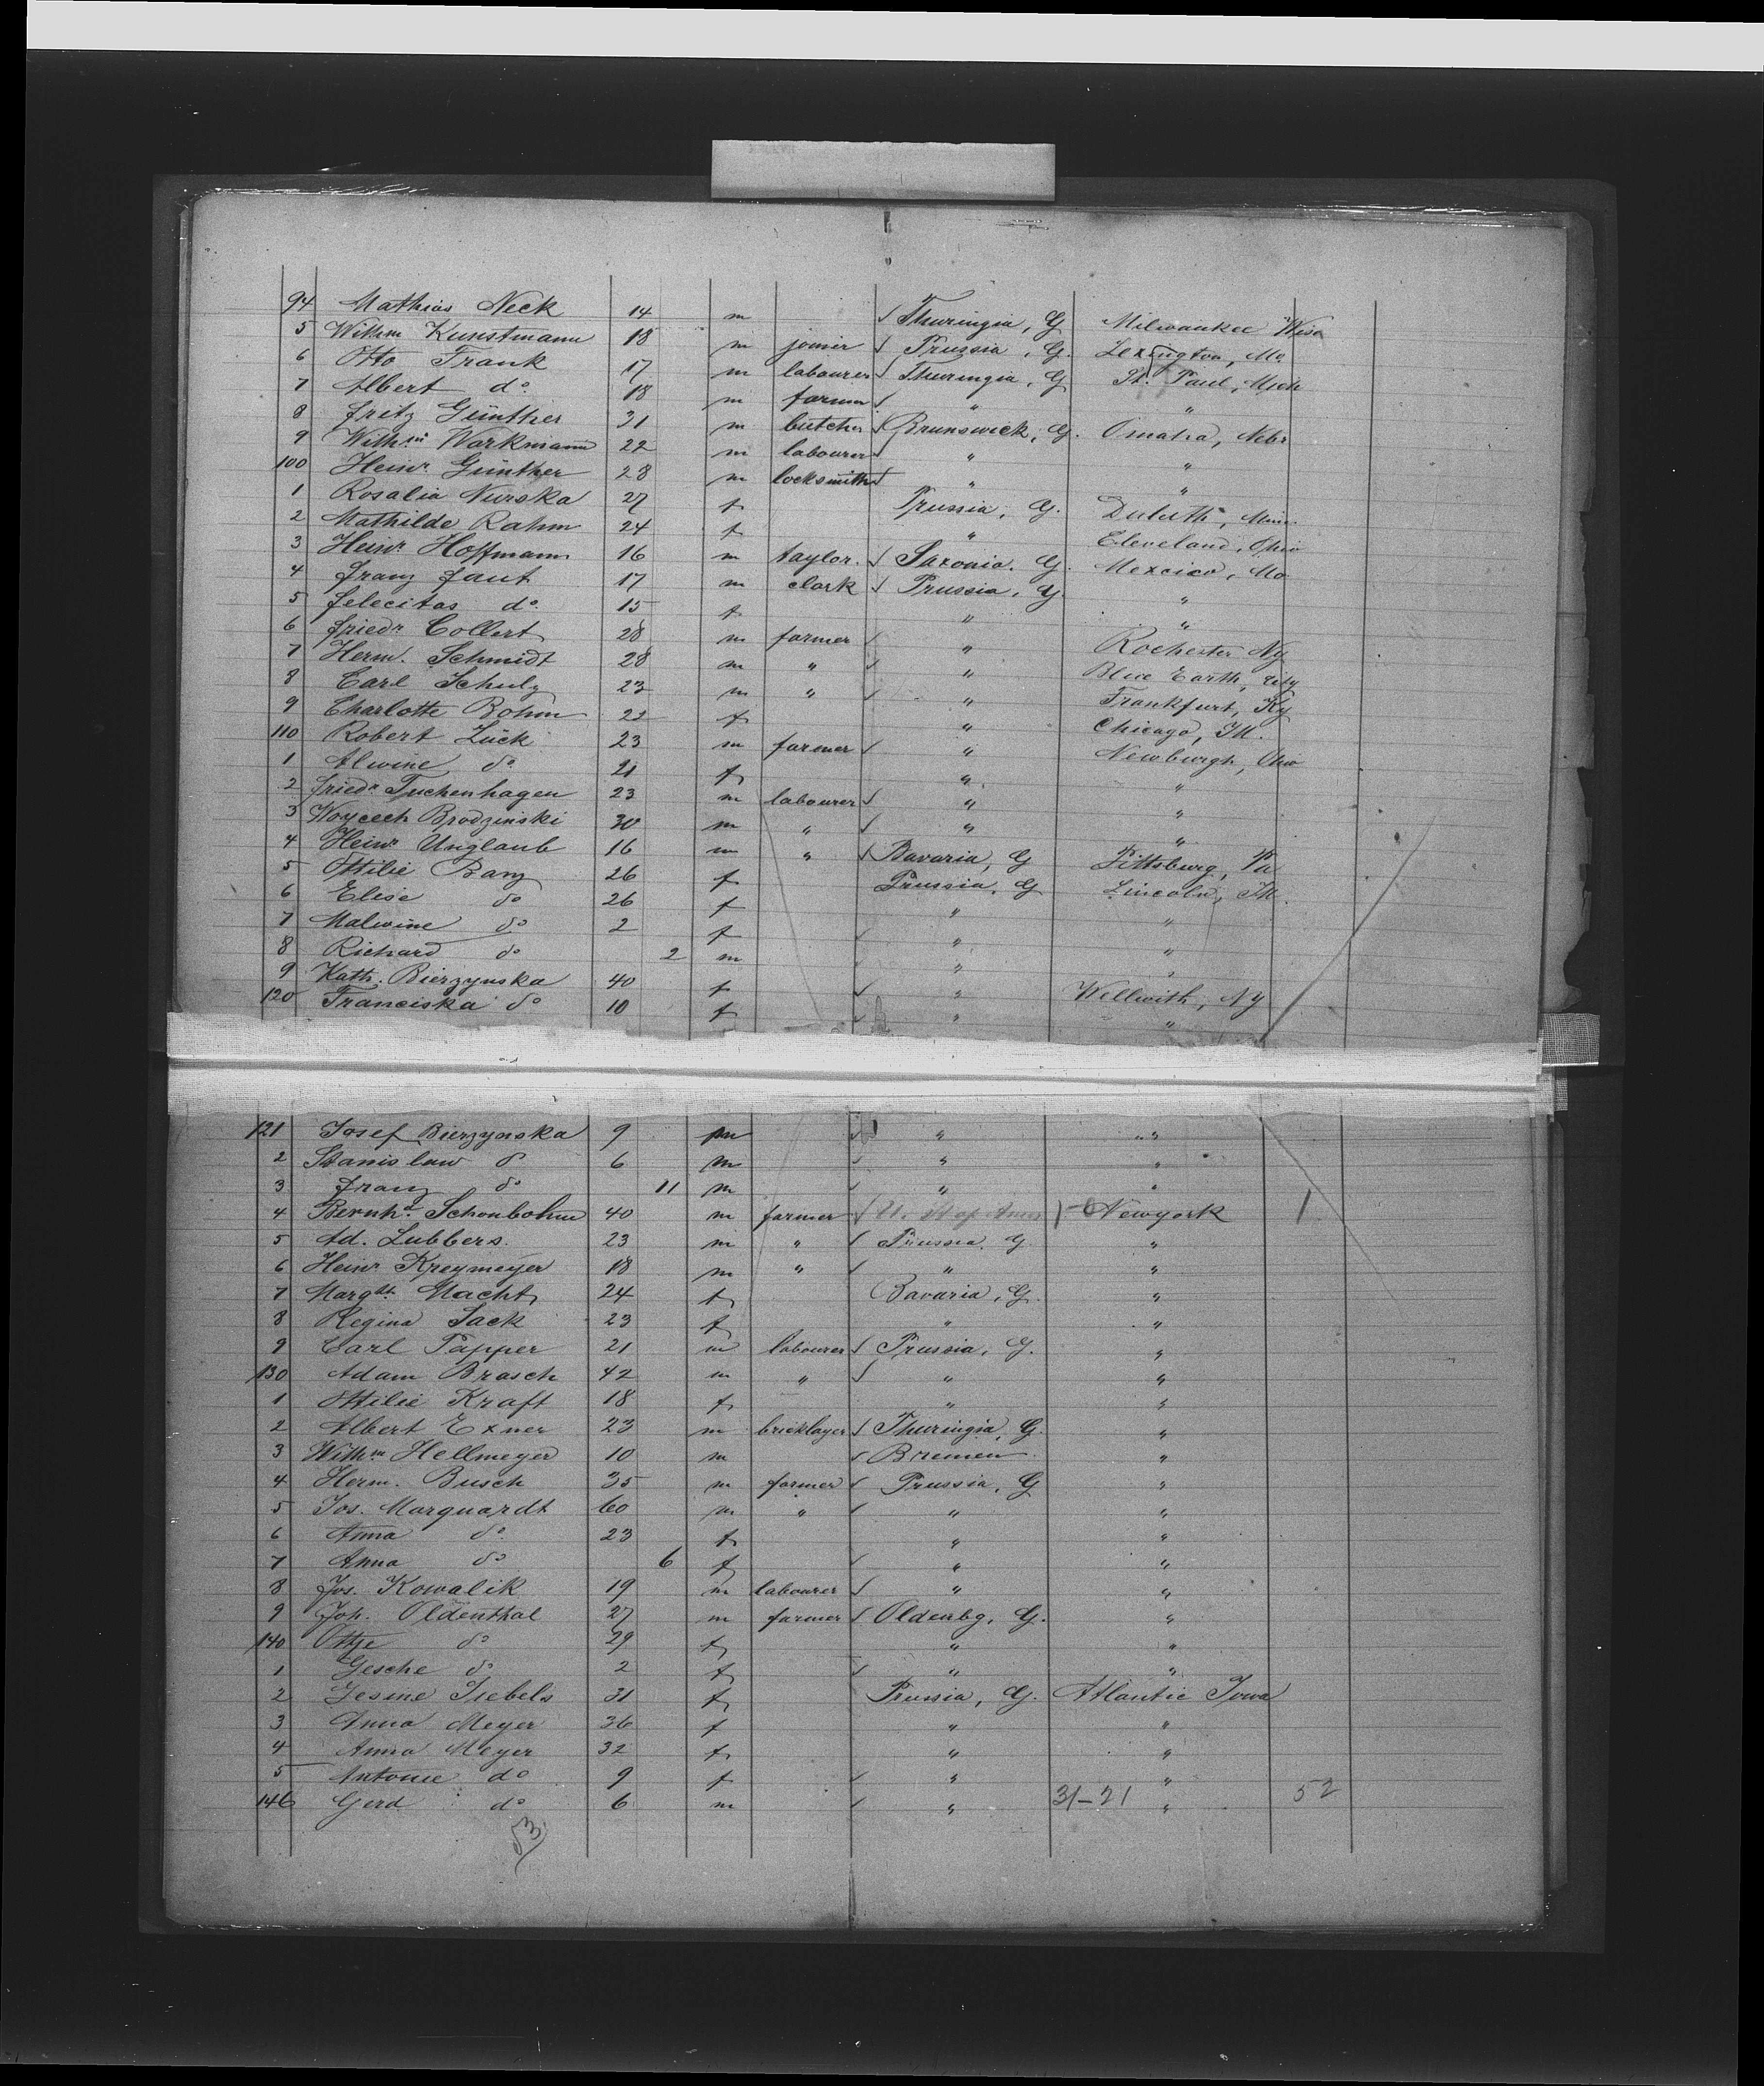 94 Mathias Neck 14 m Thuringia, G Milwaukee Wisc
5 Wilhm Kunstmann 18 m joiner Prussia, G. Lexington, Mo
6 Otto Frank 17 m labourer Thuringia, G St. Paul, Mich
7 Albert do 18 m farmer " "
8 Fritz Günther 31 m butcher Brunswick, G. Omaha, Nebr
9 Wilhm Warkmann 22 m labourer " "
100 Heinr. Günther 28 m locksmith " "
1 Rosalia Nurska 27 f Prussia, G. Duluth, Minn.
2 Mathilde Rahm 24 f " Cleveland, Ohio
3 Heinr. Hoffmann 16 m taylor. Saxonia. G. Mexcico, Mo
4 Franz Faut 17 m clark Prussia, G. "
5 Felecitas do 15 f " "
6 Friedr Collert 28 m farmer " Rochester Ny
7 Herm. Schmidt 28 m " " Blue Earth, City
8 Carl Schulz 23 m " " Frankfurt, Ky
9 Charlotte Bohm 22 f " Chicago, Ill.
110 Robert Lück 23 m farmer " Newburgh, Ohio
1 Alwine do 21 f " "
2 Friedr Tuchenhagen 23 m labourer " "
3 Woycech Brodzinski 30 m " " "
4 Heinr Unglaub 16 m " Bavaria, G Pittsburg, Pa
5 Ottilie Banz 26 f Prussia, G Lincoln, Ill.
6 Elise do 26 f " "
7 Malwine do 2 f " "
8 Richard do 2 m " "
9 Kath. Bierzynska 40 f " Wellwith, Ny
120 Franciska do 10 f " "
121 Josef Bierzynska 9 m " "
2 Stanislaw do 6 m " "
3 Franz do 11 m " "
4 Bernhd. Schonbohm 40 m farmer U. St of Amer Newyork 1
5 Ad. Lubbers. 23 m " Prussia G "
6 Heinr Kreymeyer 18 m " " "
7 Margth. Macht 24 f Bavaria, G. "
8 Regina Sack 23 f " "
9 Carl Papper 21 m labourer Prussia, G. "
130 Adam Brasch 42 m " " "
1 Ottilie Kraft 18 f " "
2 Albert Exner 23 m bricklayer Thuringia, G. "
3 Wilhm Hellmeyer 10 m Bremen "
4 Herm. Busch 35 m farmer Prussia, G "
5 Jos. Marquardt 60 m " " "
6 Anna do 23 f " "
7 Anna do 6 f " "
8 Jos. Kowalik 19 m labourer " "
9 Joh. Oldenthal 27 m farmer Oldenbg, G. "
140 Ottje do 29 f " "
1 Gesche do 2 f " "
2 Gesine Siebels 31 f Prussia, G. Atlantic Iowa
3 Anna Meyer 36 f " "
4 Anna Meyer 32 f " "
5 Antonie do 9 f " "
146 Gerd do 6 m " 31-21 " 52
53